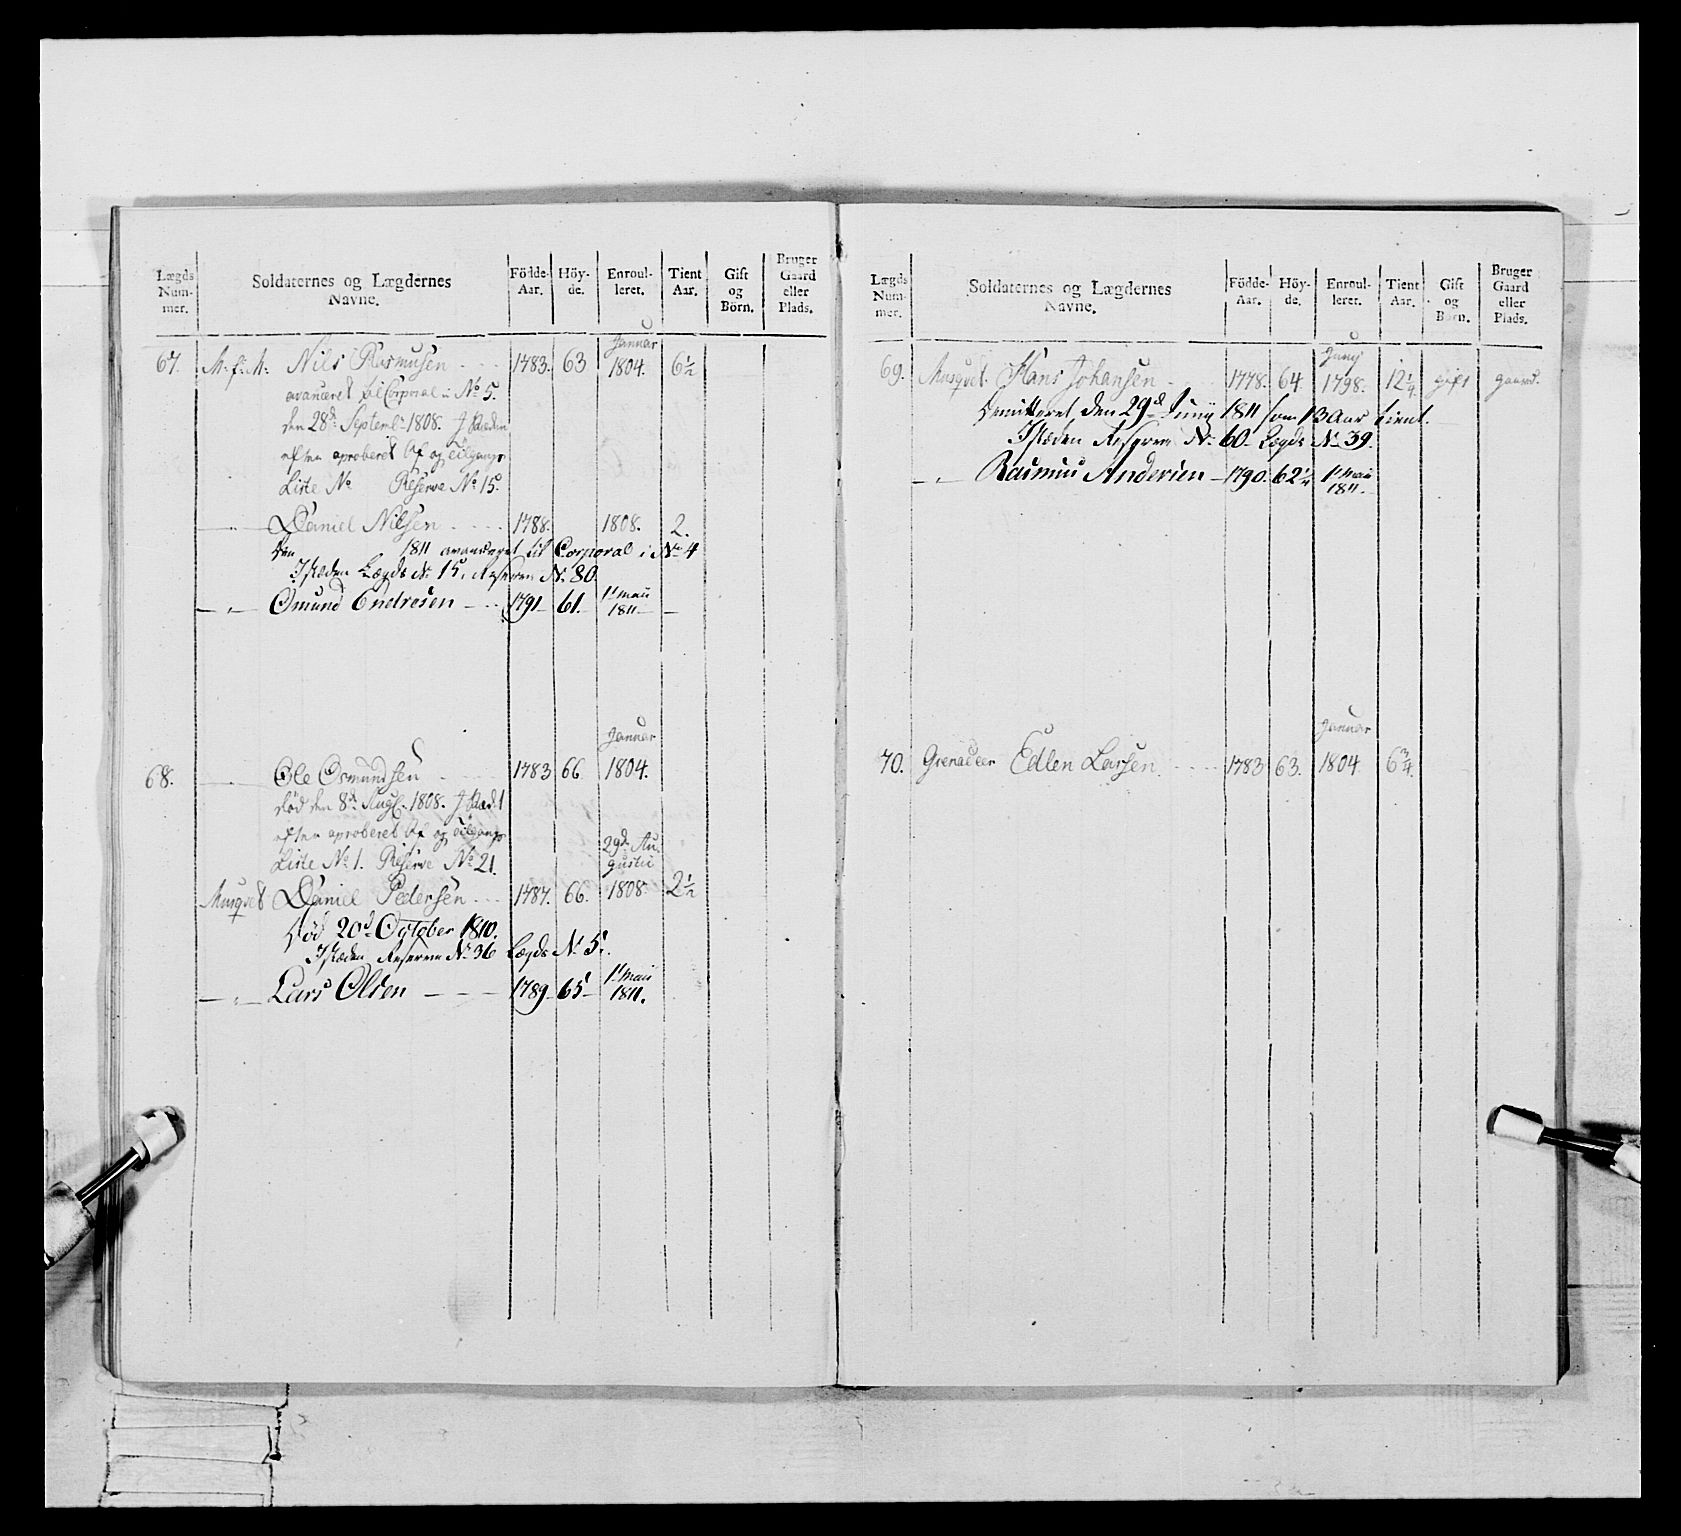 Lægds Num- mer.
Soldaternes og Lægdernes Navne.
Födde- Aar.
Höy- de.
Enroul- leret.
Tient Aar.
Gift og Börn.
Bruger Gaard eller Plads.
Januar
67. M:f:M: Nils Rasmusen 1783. 63 1804. 6½
avanceret til Corporal i No 5.
den 28de Septembr 1808. I Stæden
efter aproberet Af og tilgangs
Liste No Reserve No 15.
Daniel Nilsen 1788. 1808. 2.
Den 1811 avanceret til Corporal i No 4
I Stæden Lægds No 15, Reserve No 80
1te maii
Osmund Endresen 1791 61. 1811
Januar
68. Ole Osmundsen 1783 66 1804.
död den 8de Augt. 1808. I Stædet
efter aproberet Af og tilgangs
Liste No 1. Reserve No 21.
29de Au-
gustii
Musqvet Daniel Pedersen 1787. 66. 1808. 2½
Död 20de October 1810.
I Stæden Reserve No 36 Lægds No 5.
1te maii
Lars Olsen 1789 65 1811.
Lægds Num- mer.
Soldaternes og Lægdernes Navne.
Födde- Aar.
Höy- de.
Enroul- leret.
Tient Aar.
Gift og Börn.
Bruger Gaard eller Plads.
Junÿ
69. Musqvet. Hans Johansen 1778. 64 1798. 12¼ gift gaard.
Demitteret den 29de Junÿ 1811 som 13 Aar tient.
I Stæden Reserve No 60 Lægds No 39.
1te maii
Rasmus Andersen 1790. 62¼ 1811
Januar
70. Grenadeer Edlen Larsen 1783 63. 1804 6¾.